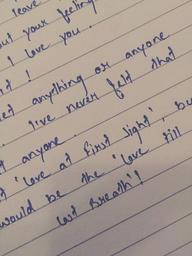 leave
out your feeling
I love you.
it!
anything or anyone
. I've never felt that
anyone.
'love at first sight', bu
would be the 'love till
last breath'!